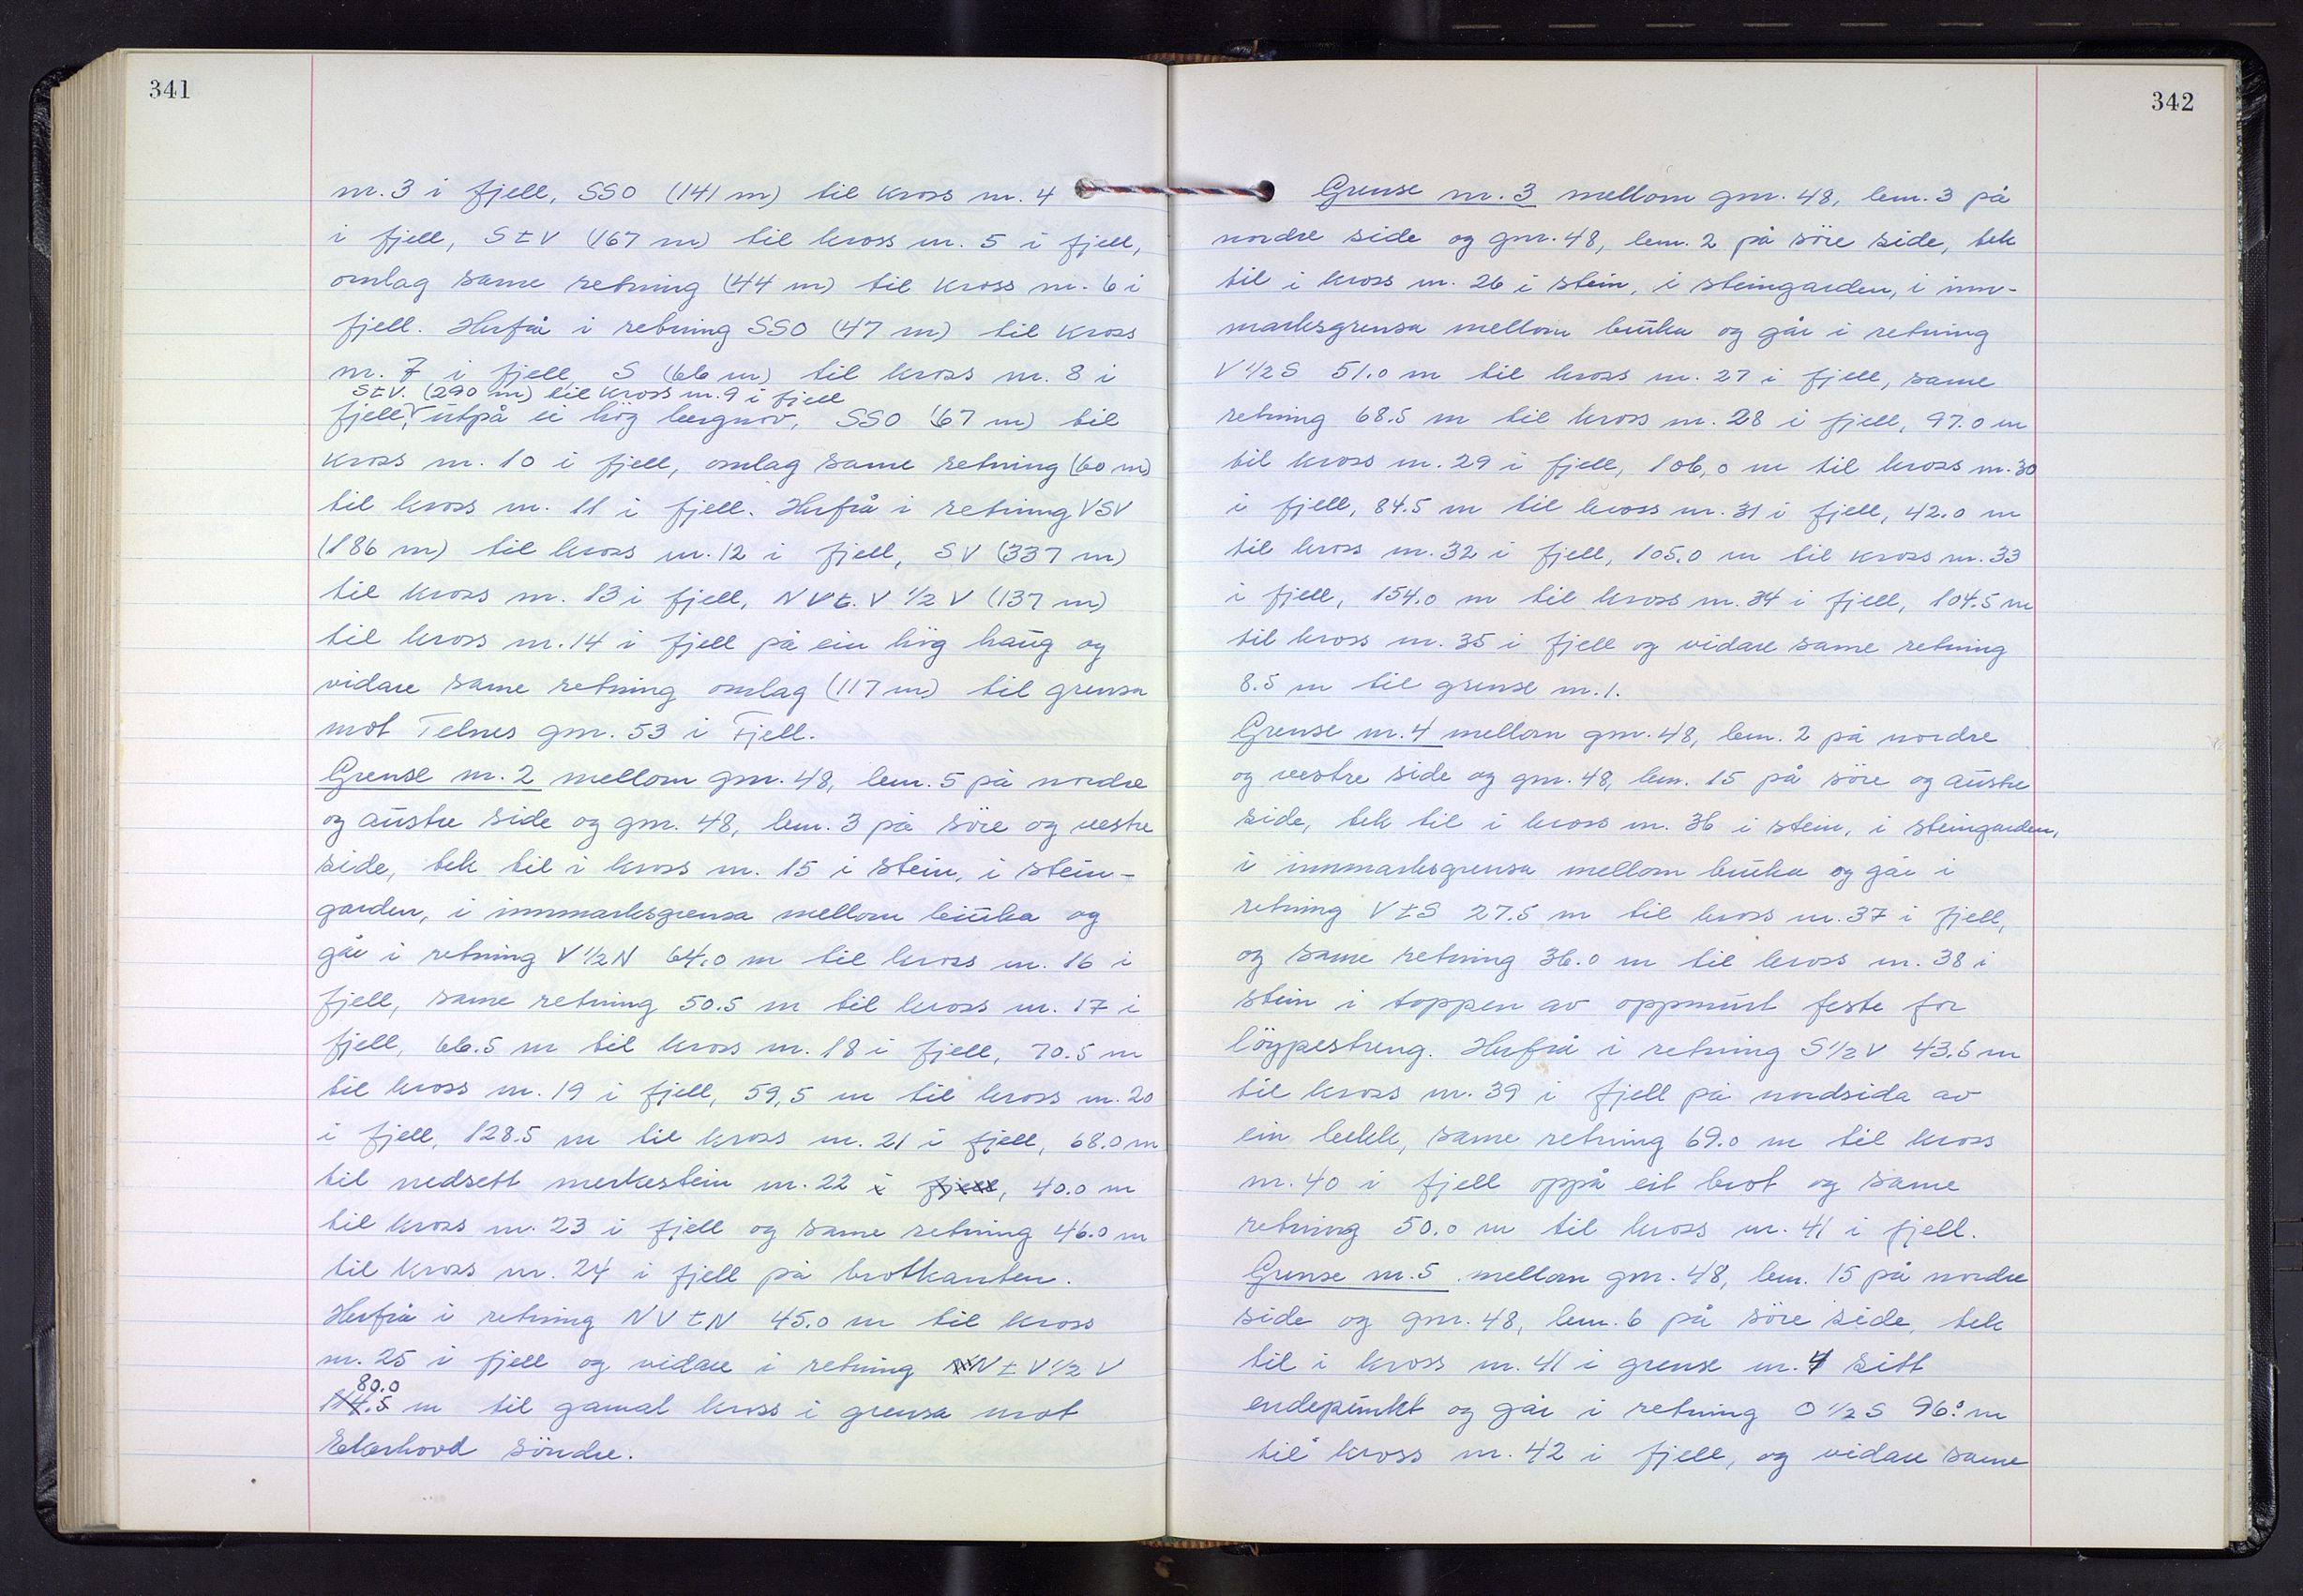 341
nr. 3 i fjell, SSO (141 m) til kross nr. 4
i fjell, StV (167 m) til kross nr. 5 i fjell,
omlag same retning (44 m) til kross nr. 6 i
fjell. Herfrå i retning SSO (47 m) til kross
nr. 7 i fjell, S (66 m) til kross nr. 8 i
StV. (290 m) til kross nr. 9 i fjell
fjell, utpå ei høg bergnov, SSO (67 m) til
kross nr. 10 i fjell, omlag same retning (60 m)
til kross nr. 11 i fjell. Herfrå i retning VSV
(186 m) til kross nr. 12 i fjell, SV (337 m)
til kross nr. 13 i fjell, NVt. V 1/2 V (137 m)
til kross nr. 14 i fjell på ein høg haug og
vidare same retning omlag (117 m) til grensa
mot Telnes gnr. 53 i Fjell.
Grense nr. 2 mellom gnr. 48, bnr. 5 på nordre
og austre side og gnr. 48, bnr. 3 på søre og vestre
side, tek til i kross nr. 15 i stein, i stein-
garden, i innmarksgrensa mellom bruka og
går i retning V 1/2 N 64.0 m til kross nr. 16 i
fjell, same retning 50.5 m til kross nr. 17 i
fjell, 66.5 m til kross nr. 18 i fjell, 70.5 m
til kross nr. 19 i fjell, 59,5 m til kross nr. 20
i fjell, 128.5 m til kross nr. 21 i fjell, 68.0 m
til nedsett merkestein nr. 22 i fjell, 40.0 m
til kross nr. 23 i fjell og same retning 46.0 m
til kross nr. 24 i fjell på brotkanten.
Herfrå i retning NVtN 45.0 m til kross
nr. 25 i fjell og vidare i retning NtV 1/2 V
80.0
m til gamal kross i grensa mot
Ekerhovd søndre.
342
Grense nr. 3 mellom gnr. 48, bnr. 3 på
nordre side og gnr. 48, bnr. 2 på søre side, tek
til i kross nr. 26 i stein, i steingarden, i inn-
marksgrensa mellom bruka og går i retning
V 1/2 S 51.0 m til kross nr. 27 i fjell, same
retning 68.5 m til kross nr. 28 i fjell, 97.0 m
til kross nr. 29 i fjell, 106,0 m til kross nr. 30
i fjell, 84.5 m til kross nr. 31 i fjell, 42.0 m
til kross nr. 32 i fjell, 105.0 m til kross nr. 33
i fjell, 154.0 m til kross nr. 34 i fjell, 104.5 m
til kross nr. 35 i fjell og vidare same retning
8.5 m til grense nr. 1.
Grense nr. 4 mellom gnr. 48, bnr. 2 på nordre
og vestre side og gnr. 48, bnr. 15 på søre og austre
side, tek til i kross nr. 36 i stein, i steingarden,
i innmarksgrensa mellom bruka og går i
retning VtS 27.5 m til kross nr. 37 i fjell,
og same retning 36.0 m til kross nr. 38 i
stein i toppen av oppmurt feste for
løypestreng. Herfrå i retning S 1/2 V 43.5 m
til kross nr. 39 i fjell på nordsida av
ein bekk, same retning 69.0 m til kross
nr. 40 i fjell oppå eit brot og same
retning 50.0 m til kross nr. 41 i fjell.
Grense nr. 5 mellom gnr. 48, bnr. 15 på nordre
side og gnr. 48, bnr. 6 på søre side, tek
til i kross nr. 41 i grense nr. 4 sitt
endepunkt og går i retning O 1/2 S 96.0 m
til kross nr. 42 i fjell, og vidare same